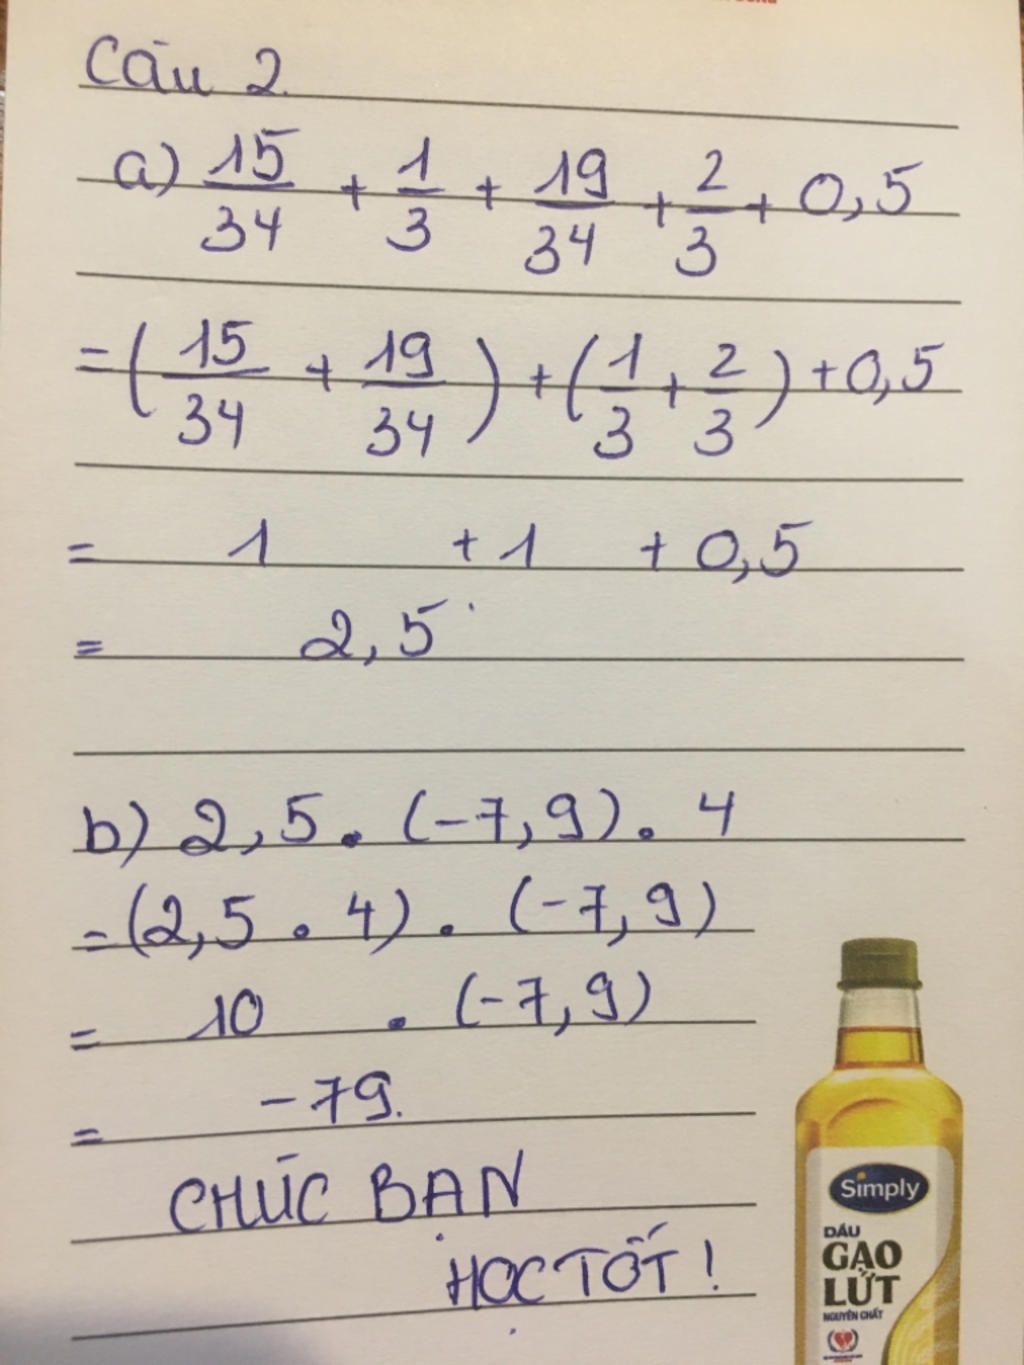 Câu 2.
a) 15/34 + 1/3 + 19/34 + 2/3 + 0,5
= (15/34 + 19/34) + (1/3 + 2/3) + 0,5
= 1 + 1 + 0,5
= 2,5
b) 2,5 . (-7,9) . 4
= (2,5 . 4) . (-7,9)
= 10 . (-7,9)
= -79.
CHÚC BẠN
HỌC TỐT !
Simply
DẦU
GẠO
LỨT
NGUYÊN CHẤT